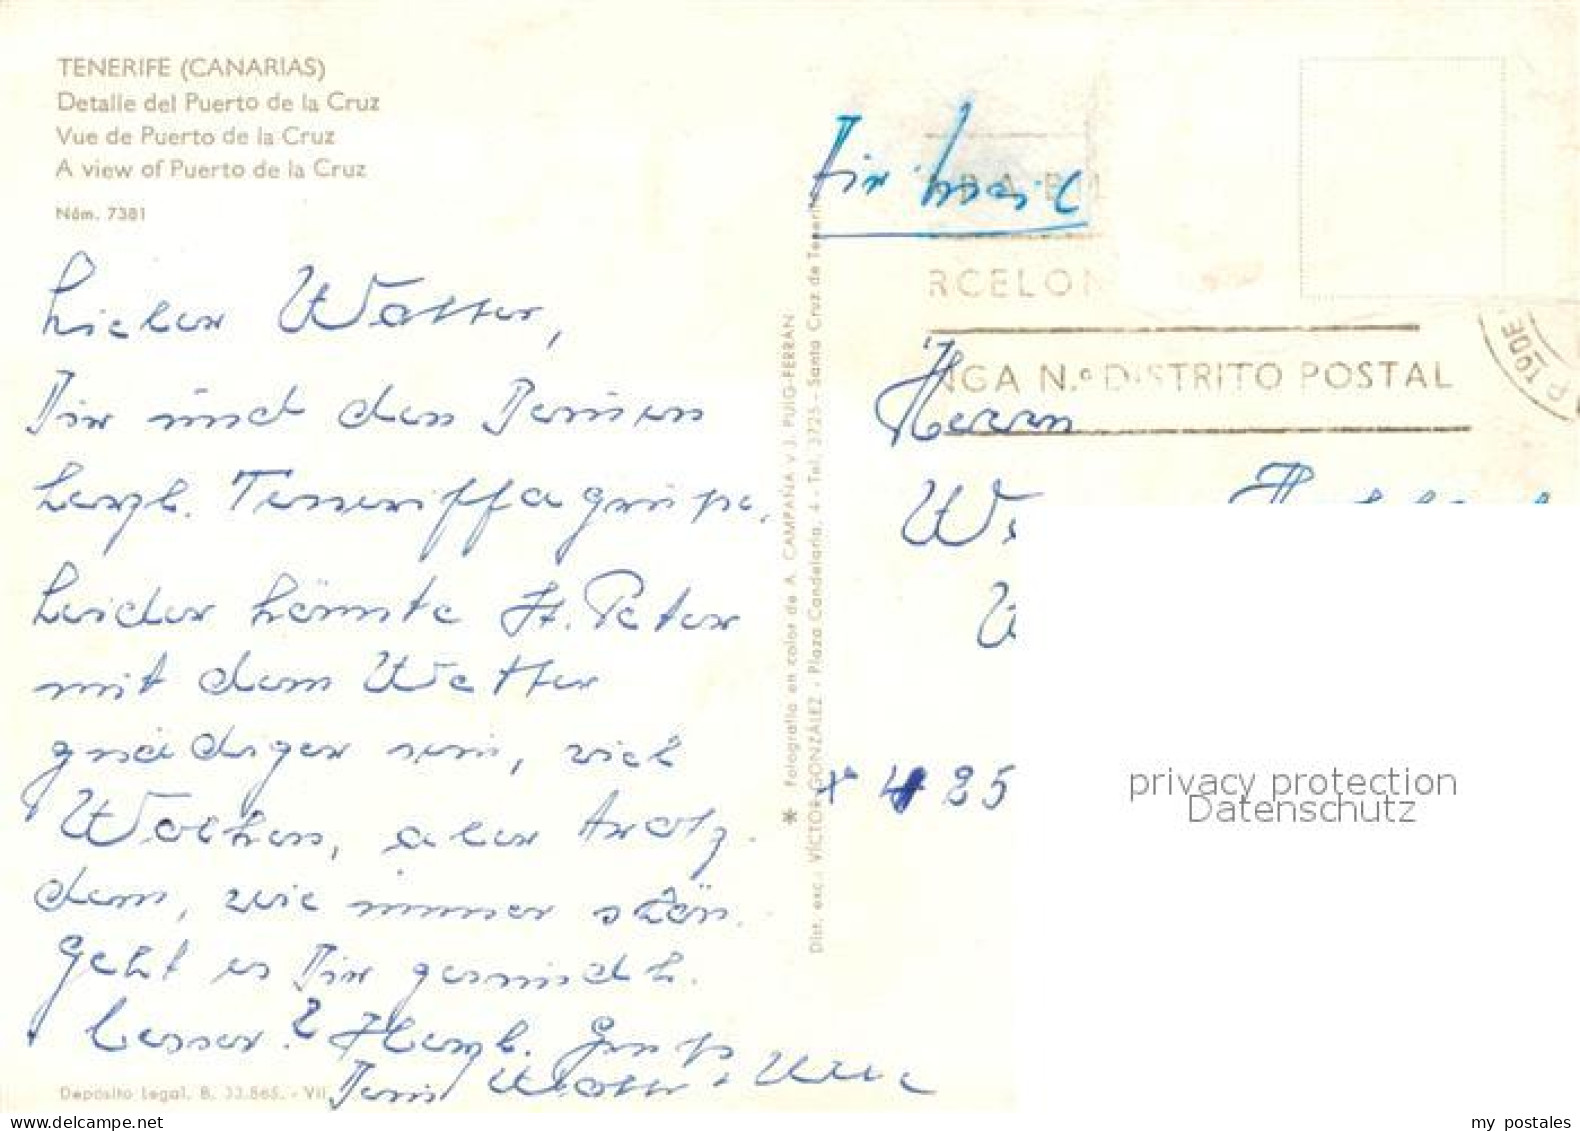 TENERIFE (CANARIAS)
Detalle del Puerto de la Cruz
Vue de Puerto de la Cruz
A view of Puerto de la Cruz
Núm. 7381
Lieber Walter,
Dir und den Deinen
herzl. Teneriffagrüße.
Leider könnte St. Peter
mit dem Wetter
gnädiger sein, viel
Wolken, aber trotz-
dem, wie immer schön.
Geht es Dir gesundh.
besser? Herzl. Grüße
Dein Walter +
Depósito Legal. B. 33.865. - VII
✱ Fotografía en color de A. CAMPAÑA y J. PUIG-FERRÁN
Dist. exc.: VÍCTOR GONZÁLEZ - Plaza Candelaria, 4 - Tel. 3725 - Santa Cruz de Tenerife
Air mail
RCELON
NGA N.º DISTRITO POSTAL
Herrn
privacy protection
Datenschutz
my postales